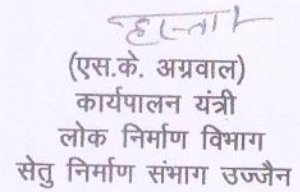 हस्ता/-
(एस.के. अग्रवाल)
कार्यपालन यंत्री
लोक निर्माण विभाग
सेतु निर्माण संभाग उज्जैन